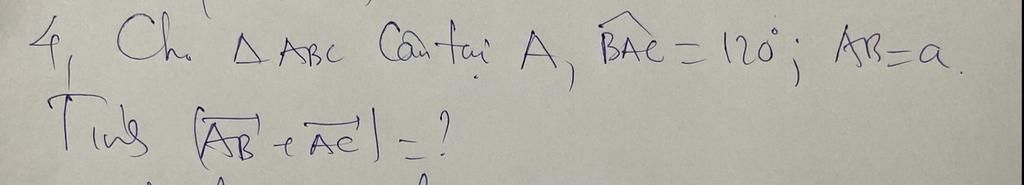 4, Ch. Δ ABC Cân tại A, $\widehat{BAC}$ = 120°; AB = a.
Tính |$\overrightarrow{AB}$ + $\overrightarrow{AC}$| = ?